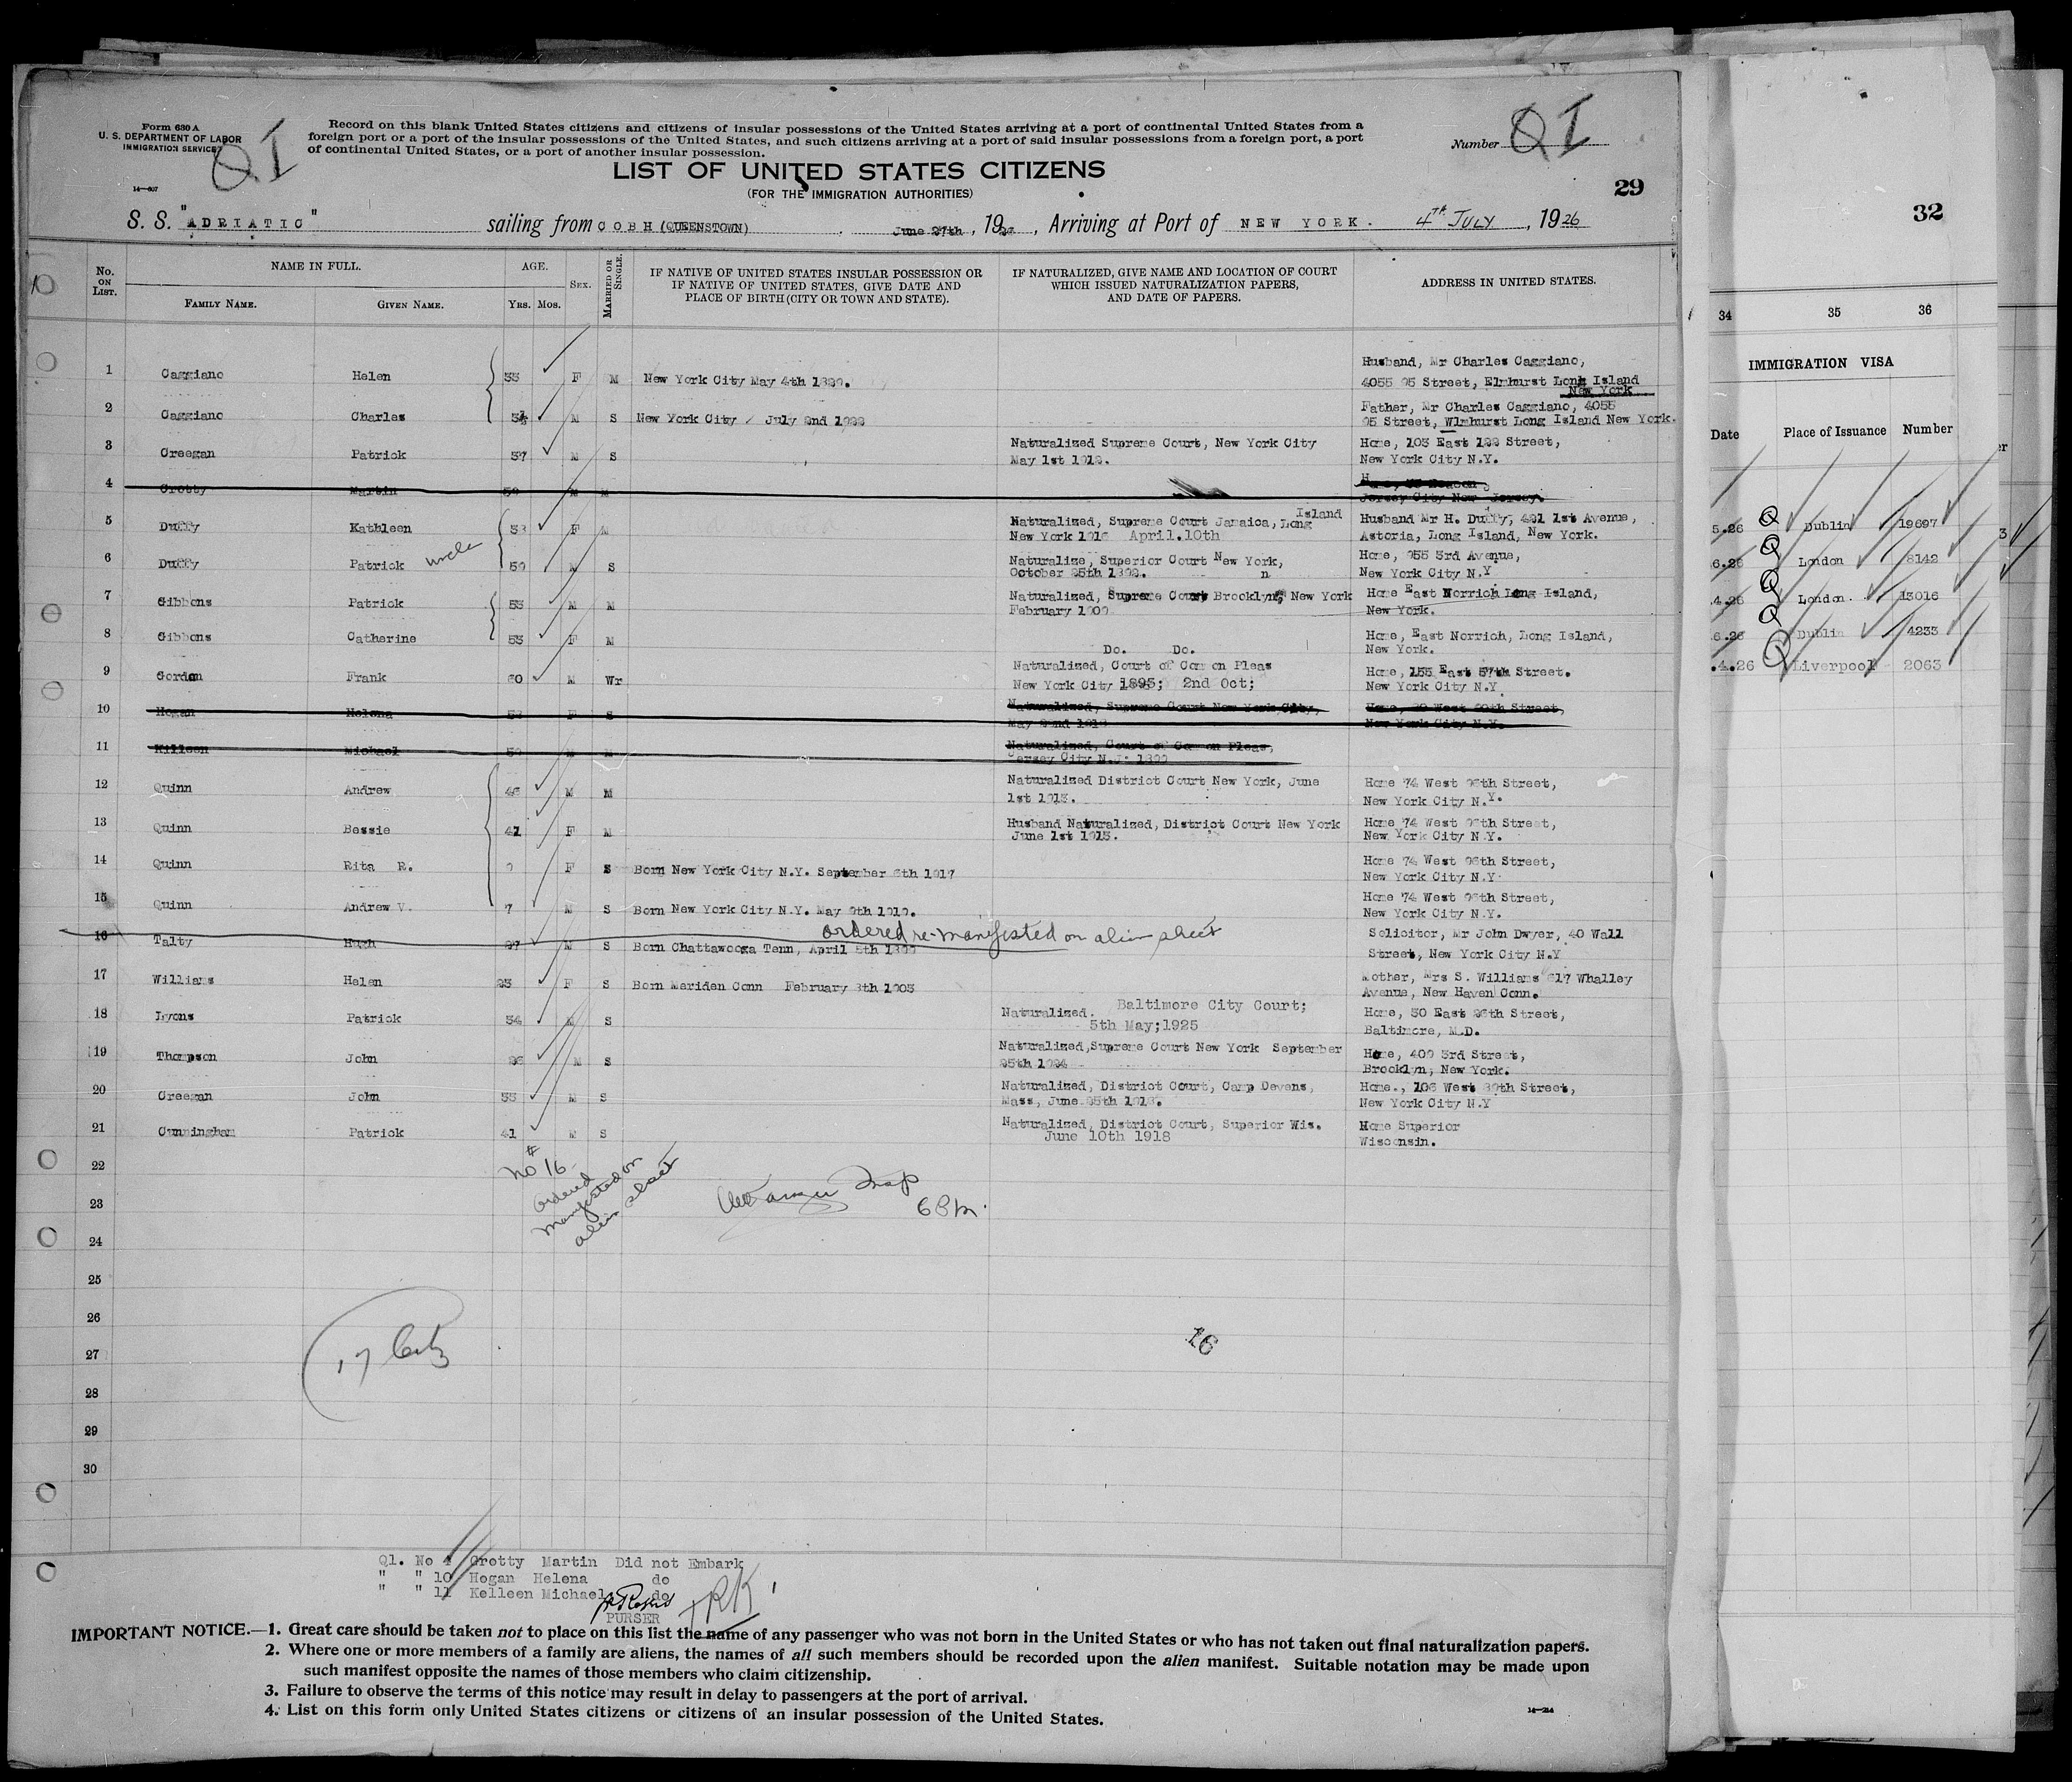 Form 630 A
U. S. DEPARTMENT OF LABOR
IMMIGRATION SERVICE
QI
14—607
Record on this blank United States citizens and citizens of insular possessions of the United States arriving at a port of continental United States from a
foreign port or a port of the insular possessions of the United States, and such citizens arriving at a port of said insular possessions from a foreign port, a port
of continental United States, or a port of another insular possession.
Number QI
LIST OF UNITED STATES CITIZENS
(FOR THE IMMIGRATION AUTHORITIES)
29
S. S. "ADRIATIC" sailing from COBH (QUEENSTOWN) June 27th, 1926, Arriving at Port of NEW YORK. 4TH JULY, 1926
No. ON LIST.
NAME IN FULL.
FAMILY NAME.
GIVEN NAME.
AGE.
YRS.
MOS.
SEX.
MARRIED OR SINGLE.
IF NATIVE OF UNITED STATES INSULAR POSSESSION OR
IF NATIVE OF UNITED STATES, GIVE DATE AND
PLACE OF BIRTH (CITY OR TOWN AND STATE).
IF NATURALIZED, GIVE NAME AND LOCATION OF COURT
WHICH ISSUED NATURALIZATION PAPERS,
AND DATE OF PAPERS.
ADDRESS IN UNITED STATES.
Husband, Mr Charles Caggiano,
1 Caggiano Helen F M New York City May 4th
4055 95 Street, Elmhurst Long Island
New York
2 Caggiano Charles M S New York City July 2nd
Father, Mr Charles Caggiano, 4055
95 Street, Wlmhurst Long Island New York.
3 Creegan Patrick M S Naturalized Supreme Court, New York City Home, 103 East 122 Street,
May 1st New York City N.Y.
4 Crotty Martin M M
Jersey City New Jersey.
5 Duffy Kathleen F M Naturalized, Supreme Court Jamaica, Long Island Husband Mr H. Duffy, 421 1st Avenue,
New York 1916 April.10th Astoria, Long Island, New York.
6 Duffy Patrick uncle M S Naturalize, Superior Court New York, Home, 955 3rd Avenue,
October 25th New York City N.Y
7 Gibbons Patrick M M Naturalized, Supreme Court Brooklyn, New York Home East Norrich Long Island,
February New York.
8 Gibbons Catherine F M Do. Do. Home, East Norrich, Long Island,
New York.
9 Gordon Frank 60 M Wr Naturalized, Court of Common Pleas Home, 155 East 57th Street.
New York City 1895; 2nd Oct; New York City N.Y.
10 Hogan Helena F S Naturalized, Supreme Court New York City,
May 22nd New York City N.Y.
11 Killeen Michael M M Naturalized, Court of Common Pleas,
Jersey City N.J.
12 Quinn Andrew 46 M M Naturalized District Court New York, June Home 74 West 96th Street,
1st 1913. New York City N.Y.
13 Quinn Bessie 41 F M Husband Naturalized, District Court New York Home 74 West 96th Street,
June 1st 1913. New York City N.Y.
14 Quinn Rita R. 9 F S Born New York City N.Y. September 6th 1917 Home 74 West 96th Street,
New York City N.Y.
15 Quinn Andrew V. 7 M S Born New York City N.Y. May 9th 1919. Home 74 West 96th Street,
New York City N.Y.
ordered re-manifested on alien sheet
16 Talty Hugh 27 M S Born Chattawooga Tenn, April 5th Solicitor, Mr John Dwyer, 40 Wall
Street, New York City N.Y
17 Williams Helen 23 F S Born Meriden Conn February 8th 1903 Mother, Mrs S. Williams 617 Whalley
Avenue, New Haven Conn.
18 Lyons Patrick 34 M S Naturalized. Baltimore City Court; Home, 30 East 26th Street,
5th May;1925 Baltimore, M.D.
19 Thompson John M S Naturalized, Supreme Court New York September Home, 409 3rd Street,
25th 1924 Brooklyn, New York.
20 Creegan John 33 M S Naturalized, District Court, Camp Devens, Home., 106 West 89th Street,
Mass, June 25th 1918. New York City N.Y
21 Cunningham Patrick 41 M S Naturalized, District Court, Superior Wis. Home Superior
June 10th 1918 Wisconsin.
22
23
24
25
26
27
28
29
30
No #16
ordered
manifested on
alien sheet
16
Q1. No 4 Crotty Martin Did not Embark
" " 10 Hogan Helena do
" " 11 Kelleen Michael do
PURSER
IMPORTANT NOTICE.—1. Great care should be taken not to place on this list the name of any passenger who was not born in the United States or who has not taken out final naturalization papers.
2. Where one or more members of a family are aliens, the names of all such members should be recorded upon the alien manifest. Suitable notation may be made upon
such manifest opposite the names of those members who claim citizenship.
3. Failure to observe the terms of this notice may result in delay to passengers at the port of arrival.
4. List on this form only United States citizens or citizens of an insular possession of the United States.
14—214
32
34 35 36
IMMIGRATION VISA
Date Place of Issuance Number
5.26 Q Dublin 19697
6.26 Q London 8142
.4.26 Q London 13016
6.26 Q Dublin 4233
.4.26 Q Liverpool 2063